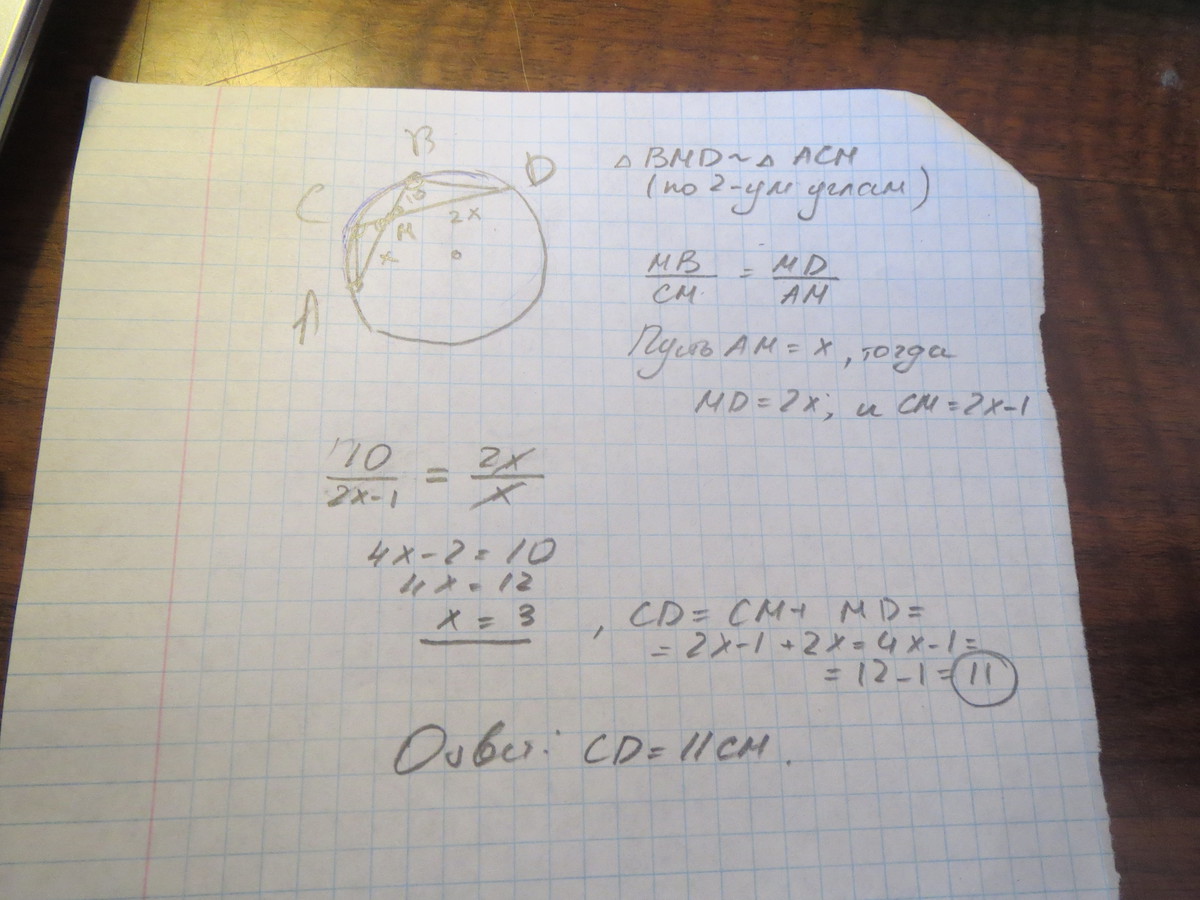 B
D
C
10
2x
M
x
A
△ BMD ~ △ ACM
(по 2-ум углам)
MB/CM = MD/AM
Пусть AM = x, тогда
MD = 2x; и CM = 2x-1
10/2x-1 = 2x/x
4x-2 = 10
4x = 12
x = 3
, CD = CM + MD =
= 2x-1 + 2x = 4x-1 =
= 12-1 = 11
Ответ: CD = 11 см.